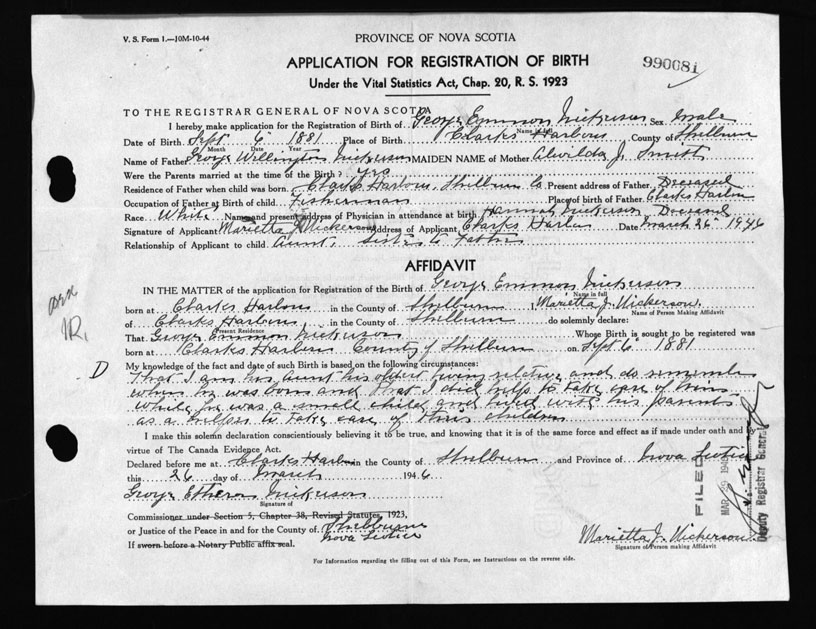 V. S. Form 1.—10M-10-44
PROVINCE OF NOVA SCOTIA
APPLICATION FOR REGISTRATION OF BIRTH
990081
Under the Vital Statistics Act, Chap. 20, R. S. 1923
TO THE REGISTRAR GENERAL OF NOVA SCOTIA
I hereby make application for the Registration of Birth of George Emmon Nickerson Sex Male
Name in full
Date of Birth Sept 6 1881 Place of Birth Clarks Harbour County of Shelburn
Month Date Year
Name of Father George Wellington Nickerson MAIDEN NAME of Mother Alvilda J. Smith
Were the Parents married at the time of the Birth? yes
Residence of Father when child was born Clarks Harbour, Shelburn Co Present address of Father Deceased
Occupation of Father at Birth of child Fisherman Place of birth of Father Clarks Harbour
Race White Name and present address of Physician in attendance at birth Hannah Nickerson Deceased
Signature of Applicant Marietta J. Nickerson Address of Applicant Clarks Harbor Date March 26 1946
Relationship of Applicant to child Aunt, Sister to Father
AFFIDAVIT
IN THE MATTER of the application for Registration of the Birth of George Emmon Nickerson
Name in full
born at Clarks Harbour in the County of Shelburn I Marietta J. Nickerson,
Name of Person Making Affidavit
of Clarks Harbour, in the County of Shelburn do solemnly declare:
Present Residence
That George Emmon Nickerson Whose Birth is sought to be registered was
born at Clarks Harbour County of Shelburn on Sept 6 1881
D My knowledge of the fact and date of such Birth is based on the following circumstances:
That I am his Aunt his oldest living relative and do remember
when he was born and that I did help to take care of him
while he was a small child and lived with his parents
as a helper to take care of their children
I make this solemn declaration conscientiously believing it to be true, and knowing that it is of the same force and effect as if made under oath and by
virtue of The Canada Evidence Act.
Declared before me at Clarks Harbor in the County of Shelburn and Province of Nova Scotia
this 26 day of March 1946
George Nickerson
Signature of
Commissioner under Section 5, Chapter 38, Revised Statutes, 1923,
or Justice of the Peace in and for the County of Shelburne
Nova Scotia
If sworn before a Notary Public affix seal.
Marietta J. Nickerson
Signature of Person making Affidavit
For Information regarding the filling out of this Form, see Instructions on the reverse side.
FILED
MAR 29 1946
Deputy Registrar General